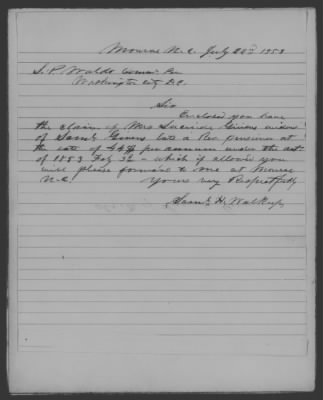 Monroe N.C. July 1853
S. P. Waldo Comr. Pen
Washington City D.C.
Sir
Enclosed you have
the claim of Mrs Givens widow
of Saml Givens late a Rev pensioner at
the rate of per annum under the act
of 1853 Feby 3d - which if allowed you
will please forward to me at Monroe
N.C. Yours very Respectfully
Saml H. Walkup